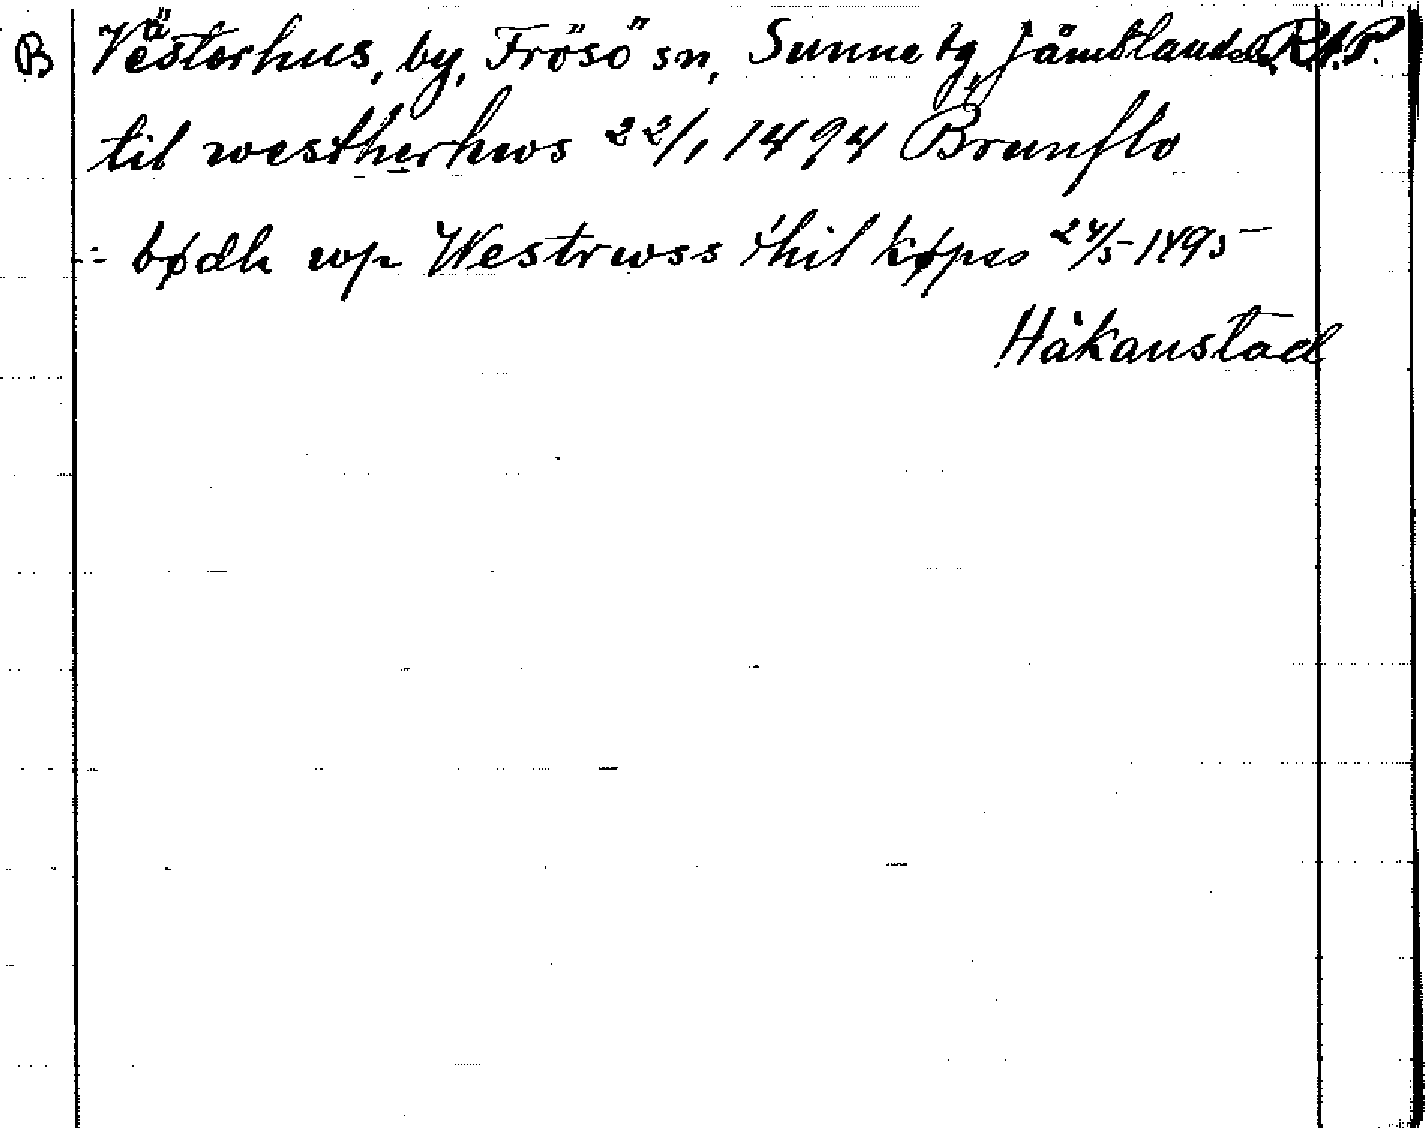 B Västerhus, by, Frösö sn, Sunne tg, Jämtlands l. R.A.P.
til westherhws 22/1 1494 Brunflo
- bødh wp Westrwss thil køpss 24/5 1495
Håkanstad